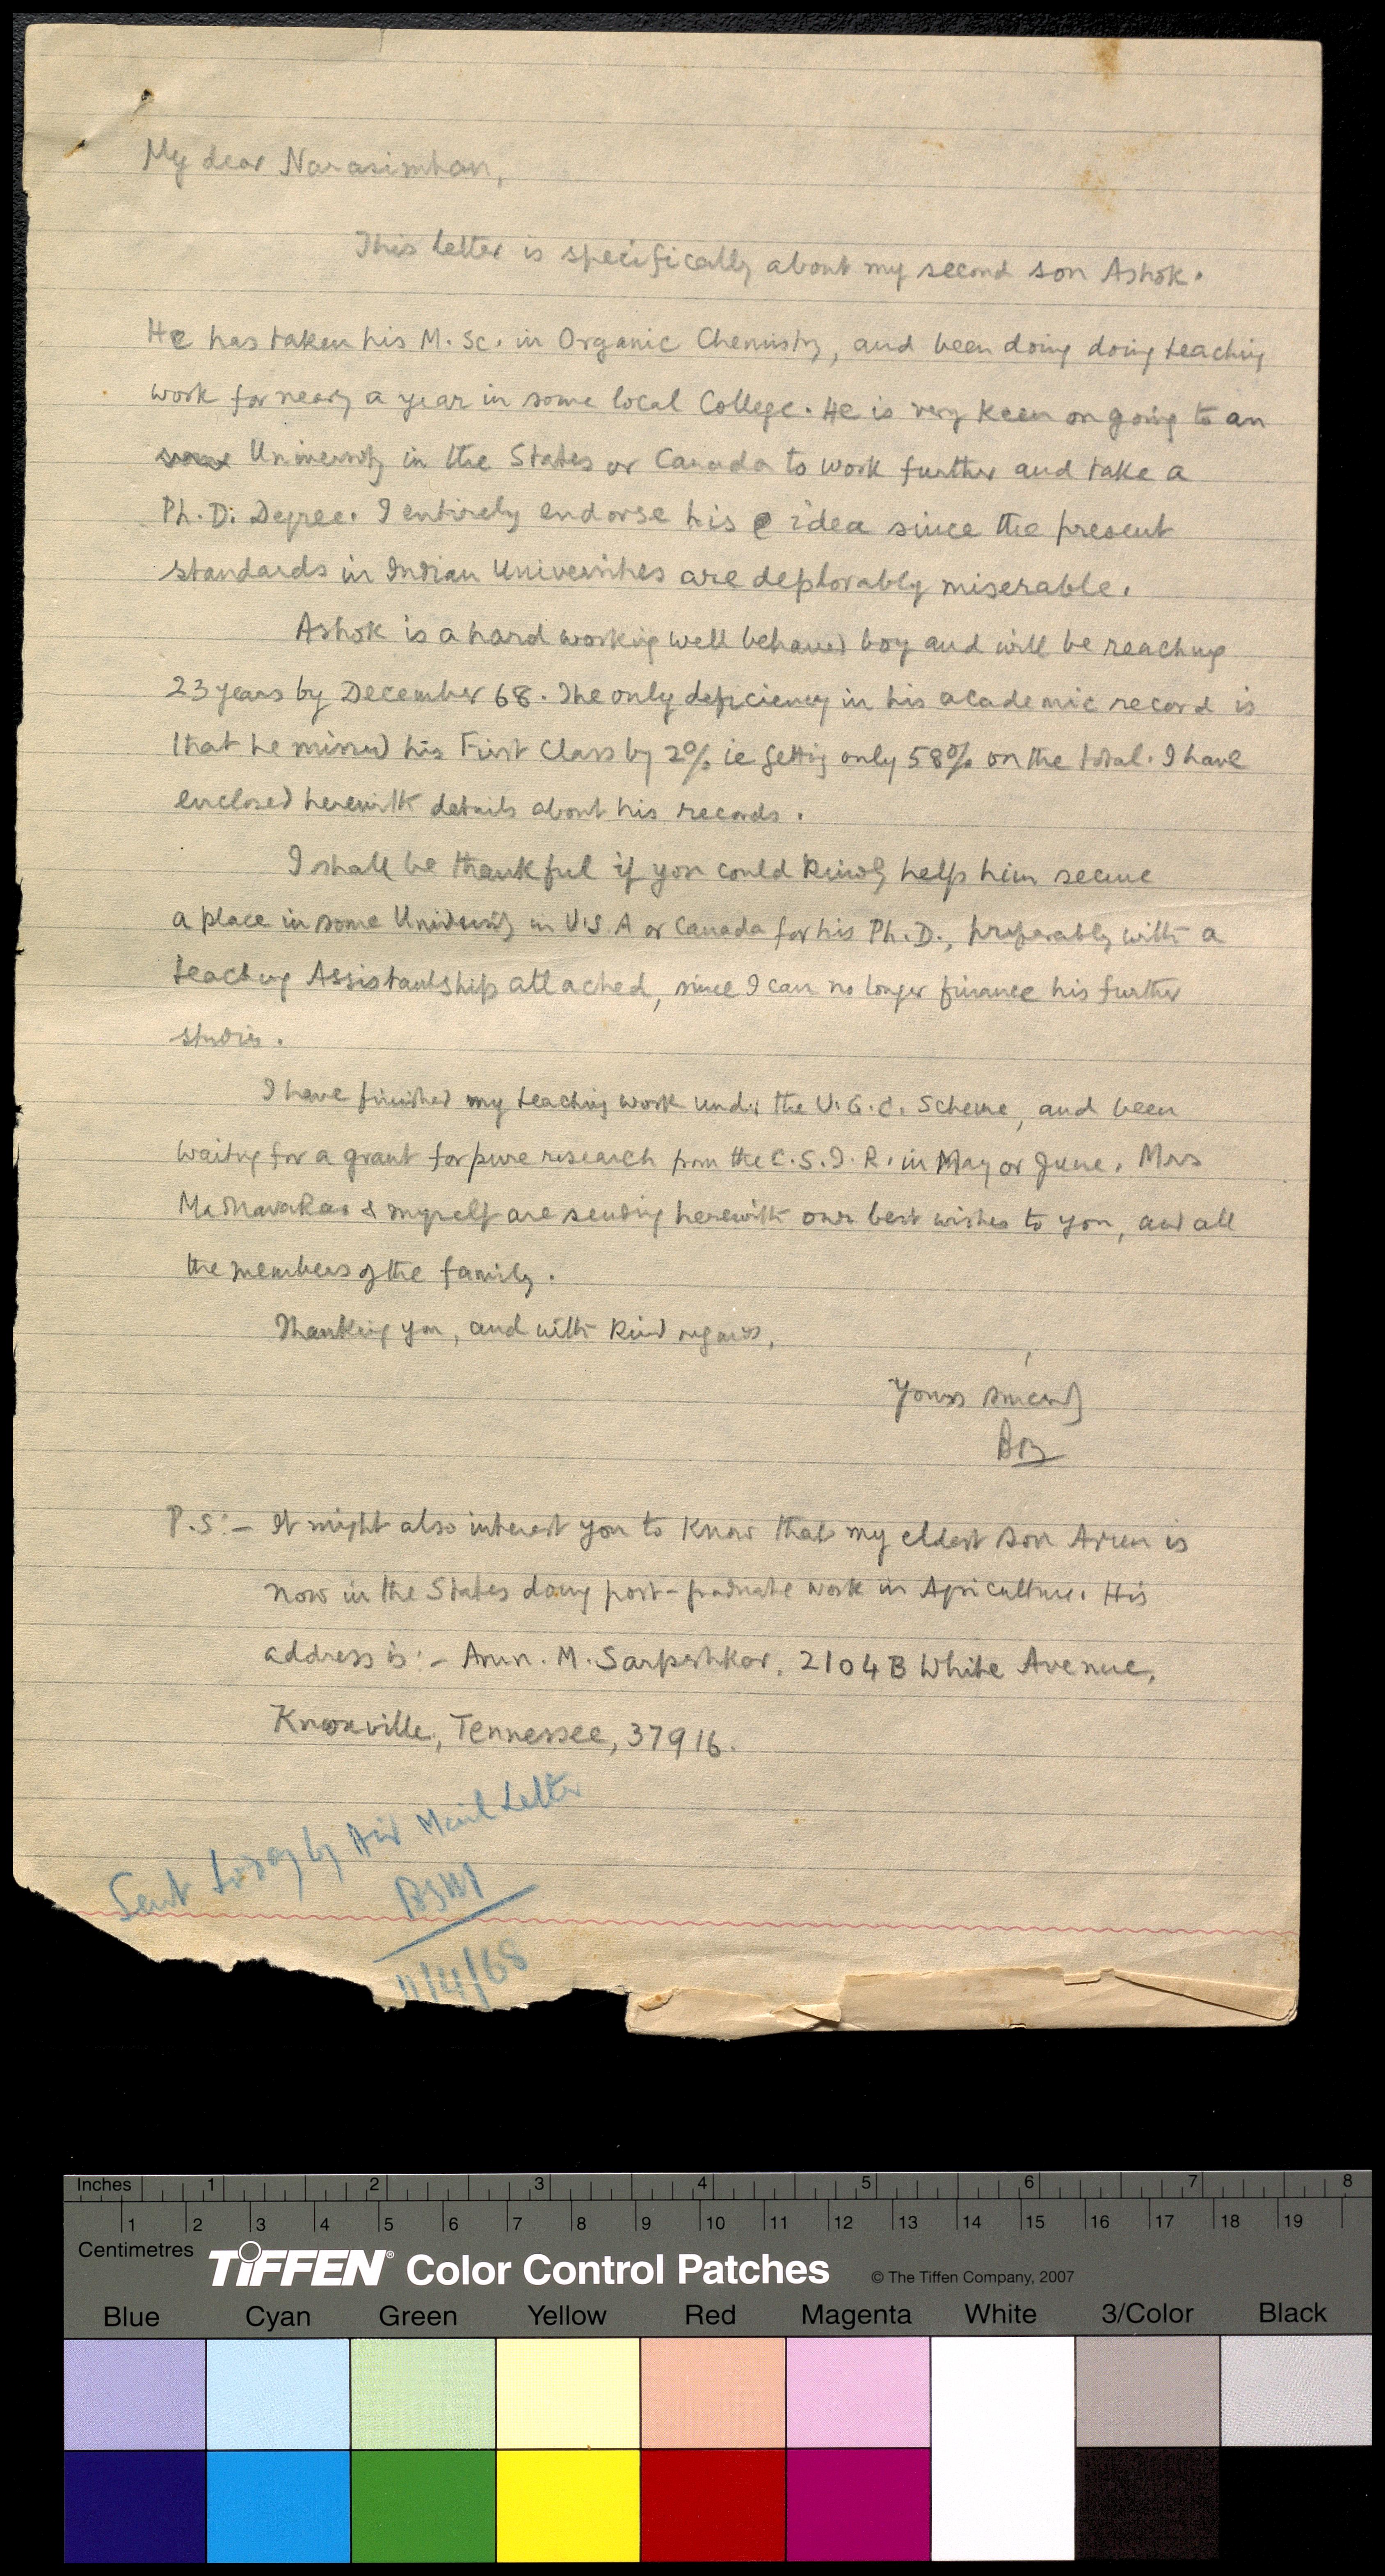 My dear Narasimhan,
This letter is specifically about my second son Ashok.
He has taken his M. Sc. in Organic Chemistry, and been doing doing teaching
work for nearly a year in some local College. He is very keen on going to an
some University in the States or Canada to work further and take a
Ph. D. Degree. I entirely endorse his idea since the present
standards in Indian Universities are deplorably miserable.
Ashok is a hard working well behaved boy and will be reaching
23 years by December 68. The only deficiency in his academic record is
that he missed his First Class by 2% ie getting only 58% on the total. I have
enclosed herewith details about his records.
I shall be thankful if you could kindly help him secure
a place in some University in U.S.A or Canada for his Ph.D., preferably with a
teaching Assistantship attached, since I can no longer finance his further
studies.
I have finished my teaching work under the U.G.C. Scheme, and been
waiting for a grant for pure research from the C.S.I.R. in May or June. Mrs
MadhavaRao & myself are sending herewith our best wishes to you, and all
the members of the family.
Thanking you, and with kind regards,
Yours sincerely
P.S:- It might also interest you to know that my eldest son Arun is
now in the States doing post-graduate work in Agriculture. His
address is:- Arun. M. Sarpeshkar, 2104 B White Avenue,
Knoxville, Tennessee, 37916.
Sent today by Air Mail Letter
11/4/68
Inches 1 2 3 4 5 6 7 8
1 2 3 4 5 6 7 8 9 10 11 12 13 14 15 16 17 18 19
Centimetres
TIFFEN® Color Control Patches © The Tiffen Company, 2007
Blue Cyan Green Yellow Red Magenta White 3/Color Black